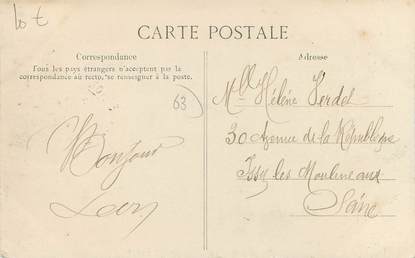 CARTE POSTALE
Correspondance
Tous les pays étrangers n'acceptent pas la
correspondance au recto, se renseigner à la poste.
63
Bonjour
Adresse
Mlle Hélène Verdet
30 Avenue de la République
Issy les Moulineaux
Seine